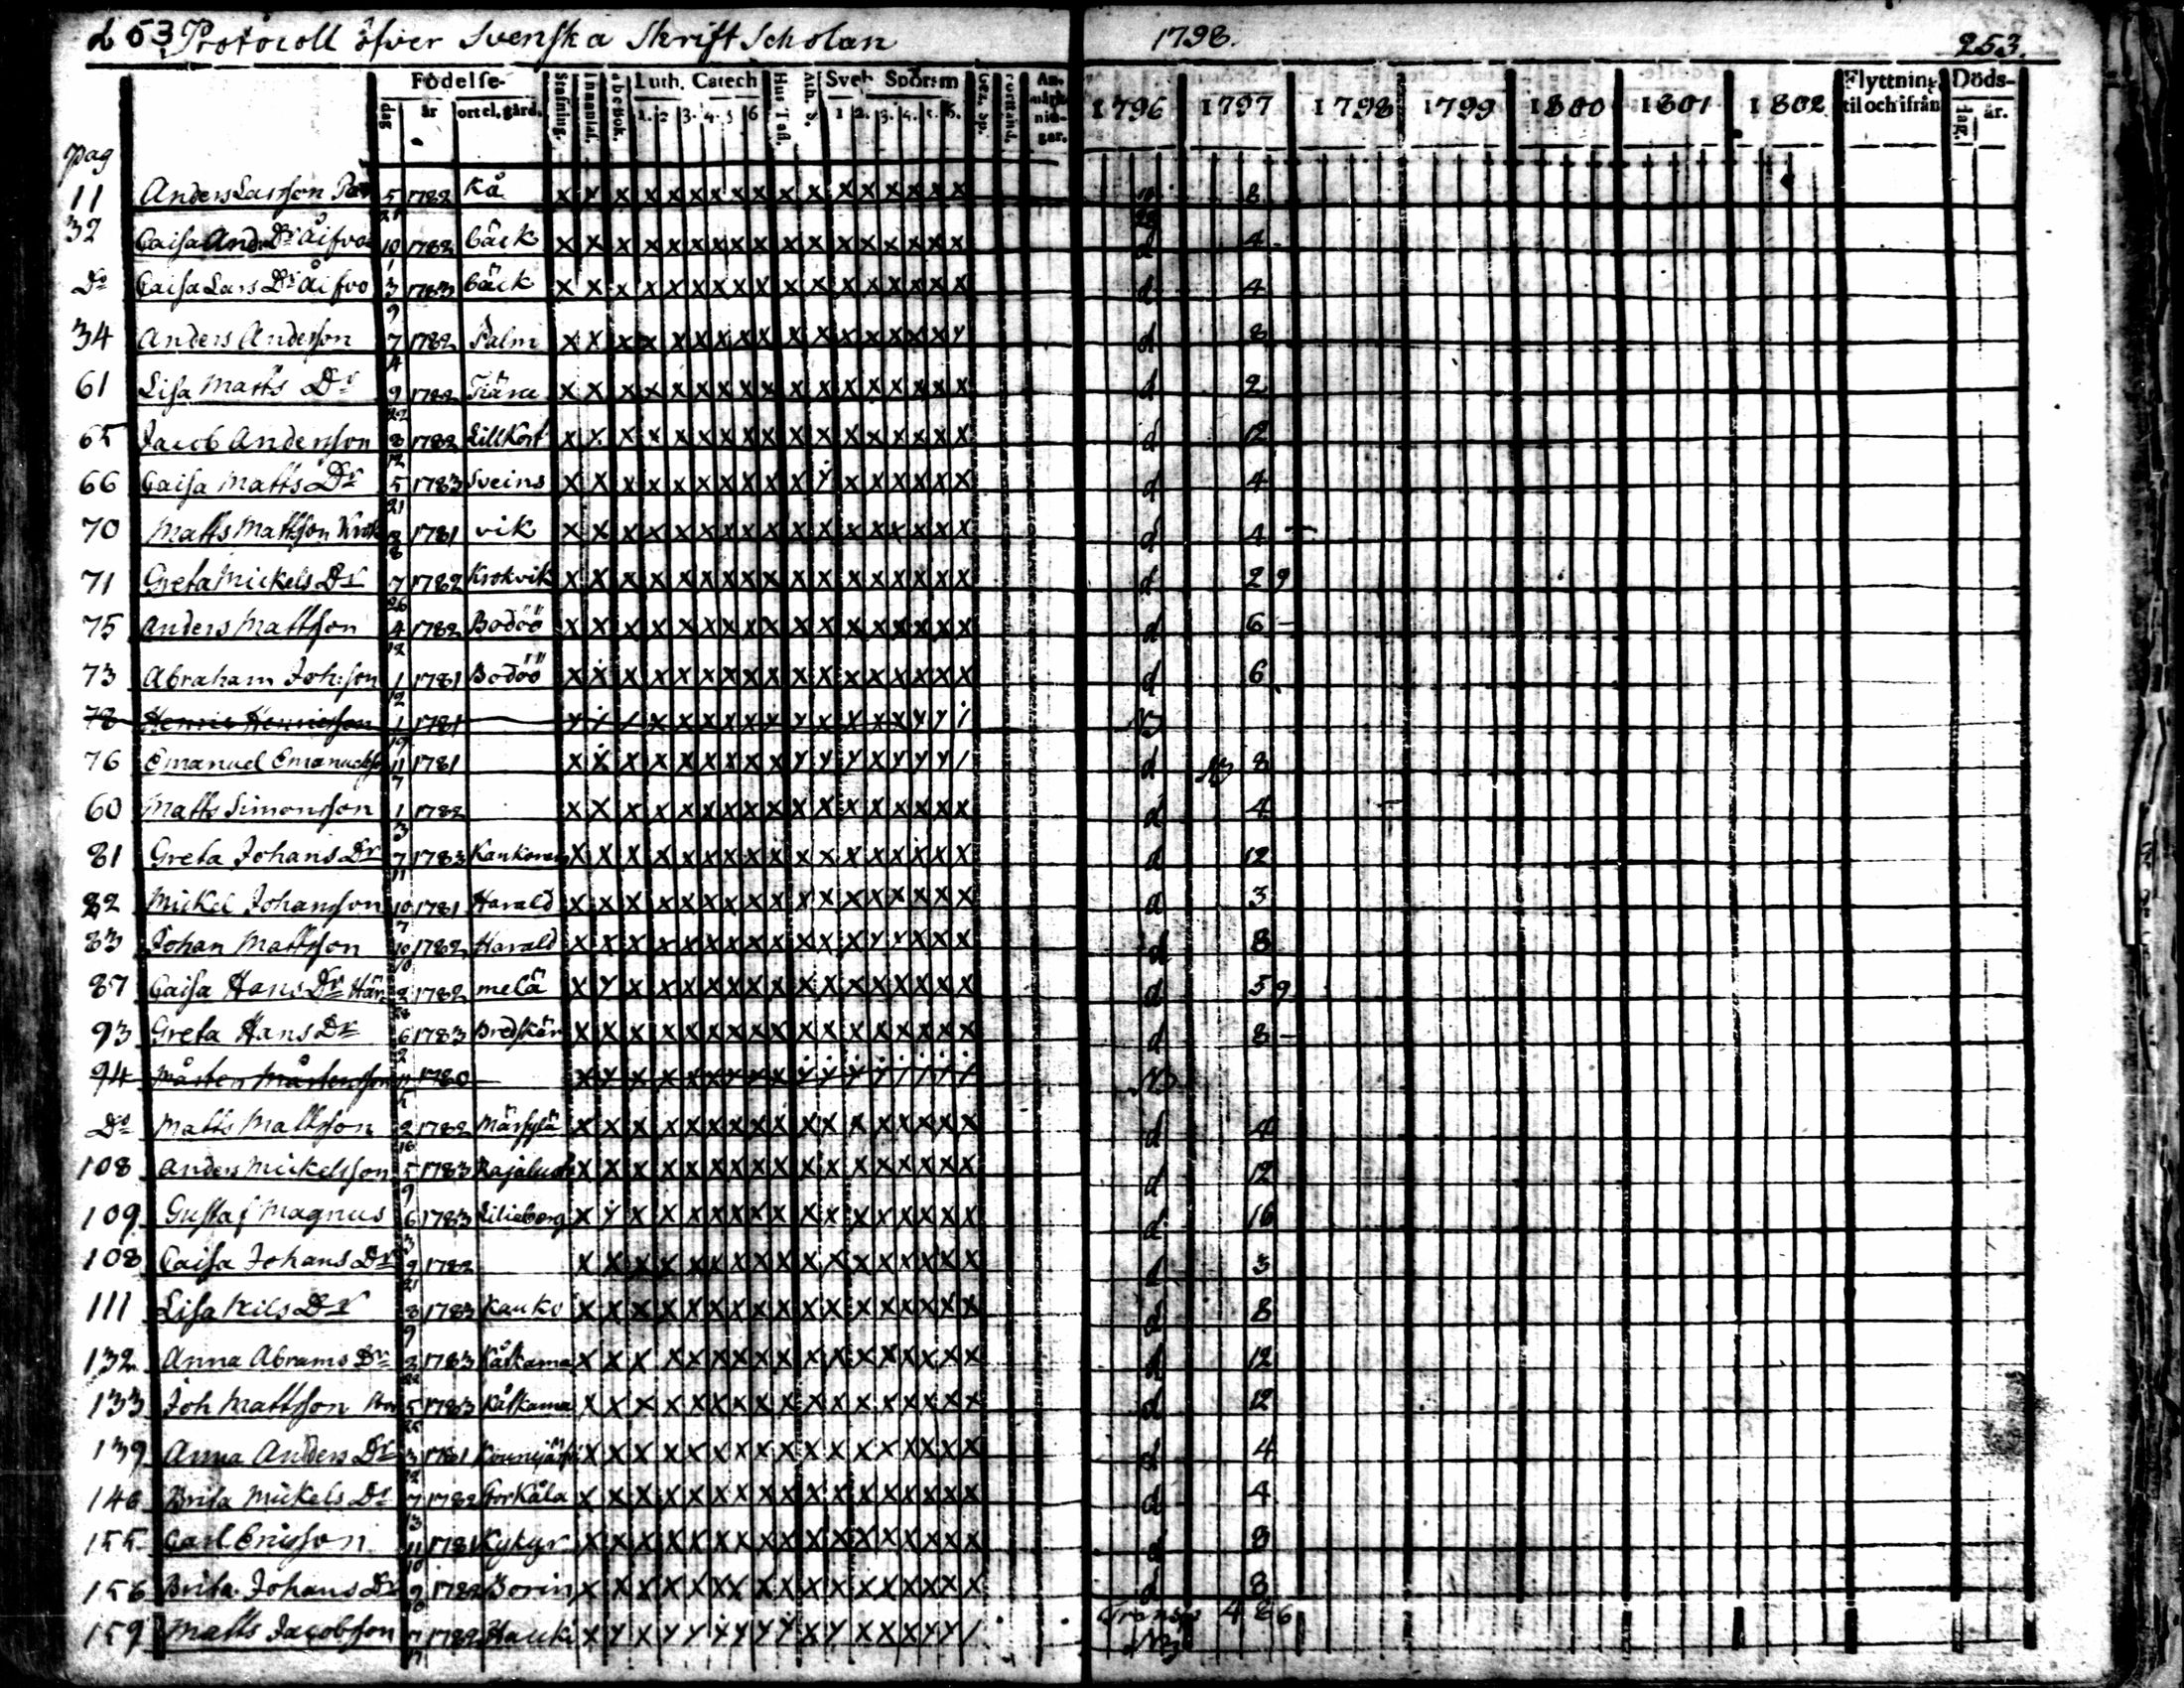 253 Protocoll öfver Svenska Skrift Scholan 1798. 253.
Födelse- Luth. Catech Sveb. Spörsm Flyttning Döds-
dag år ort el. gård. Stafning. Innanläs. a b c bok. 1. 2 3. 4. 5 6 Hus Tafl. Ath. S. 1 2. 3. 4. 5. 6. Gez. Sp. Förstånd. An-märk-nin-gar. 1796 1797 1798 1799 1800 1801 1802 til och ifrån dag. år.
Pag
11 Anders Larsson 5 1782 Kå x x x x x x x x x x x x x x x x x 8
21
32 Caisa And. Dr Åifvo 10 1782 bäck x x x x x x x x x x x x x x x x x d 4
1
Do Caisa Lars Dr Åifvo 3 1783 bäck x x x x x x x x x x x x x x x x x d 4
9
34 Anders Andersson 7 1782 Palm x x x x x x x x x x x x x x x x y d 8
4
61 Lisa Matts Dr 9 1782 Träne x x x x x x x x x x x x x x x x x d 2
22
65 Jacob Andersson 8 1782 Lillkort x x x x x x x x x x x x x x x x x d 12
12
66 Caisa Matts Dr 5 1783 Sveins x x x x x x x x x x y x x x x x x d 4
21
70 Matts Mattsson Krok 1781 vik x x x x x x x x x x x x x x x x x d 4
8
71 Greta Mickels Dr 7 1782 Krokvik x x x x x x x x x x x x x x x x x d 2 9
26
75 Anders Mattsson 4 1782 Bodöö x x x x x x x x x x x x x x x x x d 6
12
73 Abraham Joh:son 1 1781 Bodöö x x x x x x x x x x x x x x x x x d 6
12
78 Henric Henricsson 1 1781
19
76 Emanuel Emanuelss 11 1781 d 8
7
60 Matts Simonsson 1 1782 x x x x x x x x x x x x x x x x x d 4
3
81 Greta Johans Dr 7 1783 Kankonen x x x x x x x x x x x x x x x x x d 12
11
82 Mickel Johansson 10 1781 Harald x x x x x x x x x x x x x x x x x d 3
7
83 Johan Mattsson 10 1782 Harald x x x x x x x x x x x x y y x x x d 8
10
87 Caisa Hans Dr Hän 2 1782 melä x y x x x x x x x x x x x x x x x d 5 9
93 Greta Hans Dr 6 1783 Bredskär x x x x x x x x x x x x x x x x x d 8
2
94 Mårten Mårtensson 11 1780
Do Matts Mattsson 2 1782 Mässylä x x x x x x x x x x x x x x x x x d 4
16
108 Anders Mickelsson 5 1783 x x x x x x x x x x x x x x x x x d 12
9
109 Gustaf Magnus 6 1783 Lilieberg x y x x x x x x x x x x x x x x x d 16
3
108 Caisa Johans Dr 9 1782 x x x x x x x x x x x x x x x x x d 3
21
111 Lisa Nils Dr 8 1783 Kauko x x x x x x x x x x x x x x x x x d 8
9
132 Anna Abrams Dr 2 1783 Kåtkama x x x x x x x x x x x x x x x x x d 12
22
133 Joh Mattsson 5 1783 Kåtkama x x x x x x x x x x x x x x x x x d 12
25
139 Anna Anders Dr 3 1781 x x x x x x x x x x x x x x x x x d 4
12
146 Brita Mickels Dr 7 1782 Gorkåla x x x x x x x x x x x x x x x x x d 4
13
155 Carl Ericsson 11 1781 Kykyr x x x x x x x x x x x x x x x x x d 8
10
156 Brita Johans Dr 9 1782 Borin x x x x x x x x x x x x x x x x x d 8
Transp
159 Matts Jacobsson 7 1782 Hauki
17